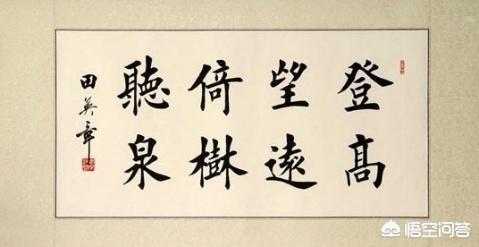 登高
望遠
倚樹
聽泉
田英章
悟空问答